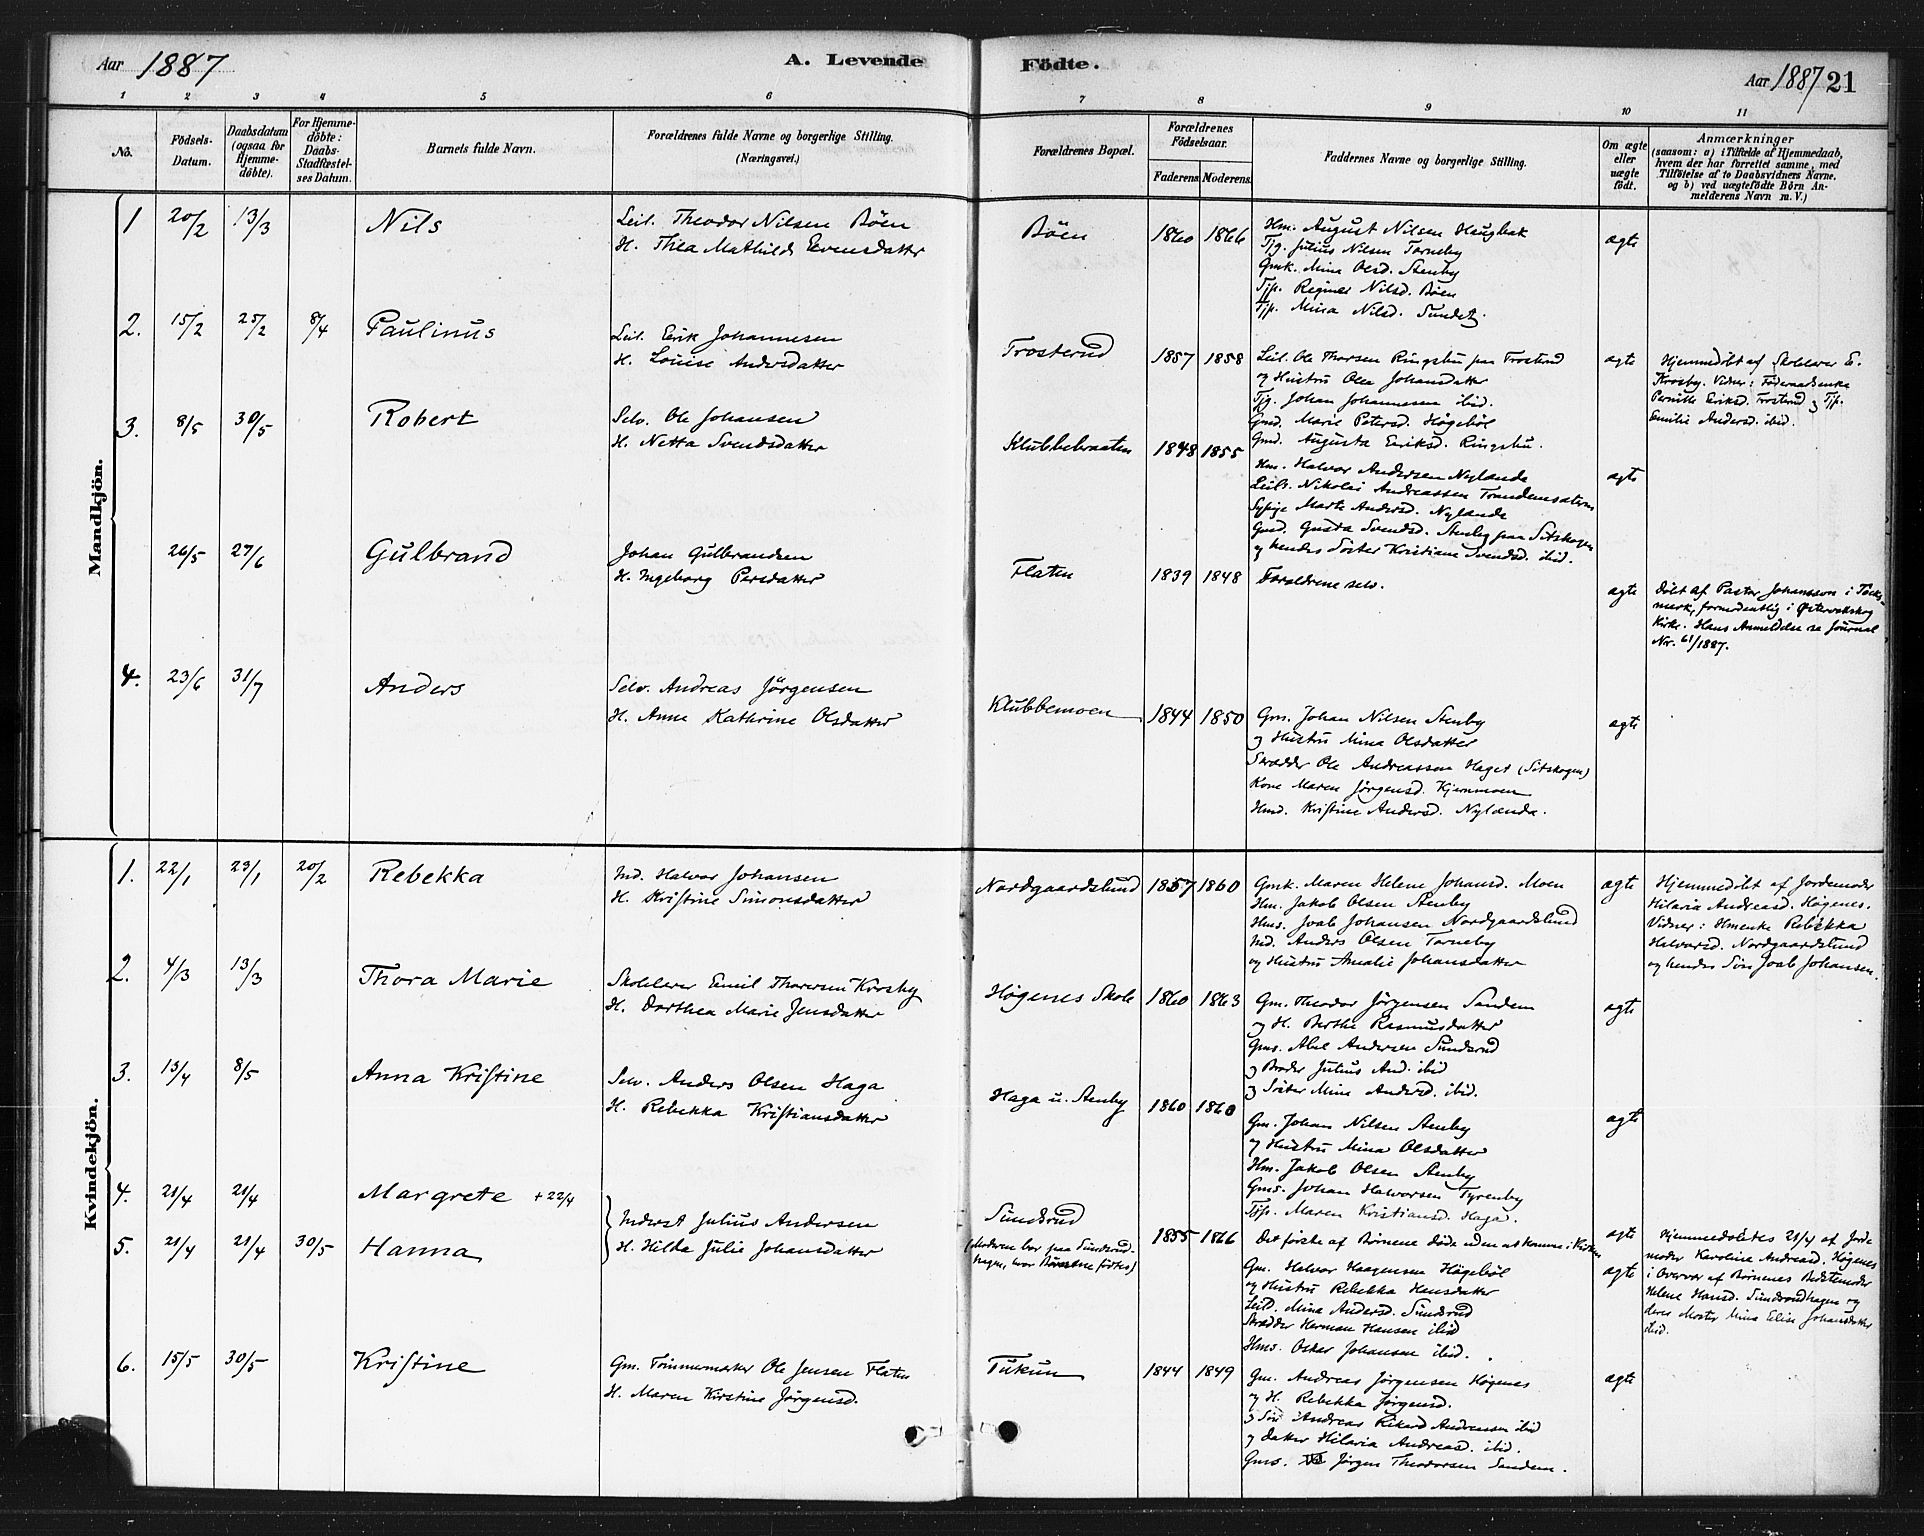 Aar 1887 A. Levende Födte. Aar 1887 21
1 2 3 4 5 6 7 8 9 10 11
No. Födsels-Datum. Daabsdatum (ogsaa for Hjemme-döbte). For Hjemme-döbte: Daabs-Stadfæstel-ses Datum. Barnets fulde Navn. Forældrenes fulde Navne og borgerlige Stilling. (Næringsvei.) Forældrenes Bopæl. Forældrenes Födselsaar. Faderens Moderens Faddernes Navne og borgerlige Stilling. Om ægte eller uægte födt. Anmærkninger (saasom: a) i Tilfælde af Hjemmedaab, hvem der har forrettet samme, med Tilföielse af to Daabsvidners Navne. og b) ved uægtefödte Börn An-melderens Navn m. V.)
Mandkjön.
1 20/2 13/3 Nils
Leil. Theodor Nilsen Böen
H. Thea Mathilde Evensdatter
Böen 1860 1866
Hm. August Nilsen Haugbak
Tjg. Julius Nilsen Torneby
Gmk. Mina Olsd. Stenby
Tjp. Regine Nilsd. Böen
Tjp. Mina Nilsd. Sundet.
ægte
2. 15/2 25/2 8/4 Paulinus
Leil. Erik Johannesen
H. Louise Andersdatter
Trosterud 1857 1858
Leil. Ole Thorsen Ringshu paa Trosterud
og Hustru Olea Johansdatter
Tjg. Johan Johannesen ibid.
Gmd. Marie Petersd. Högeböl
Gmd. Augusta Eriksd. Ringshu.
ægte
Hjemmedöbt af Skolelærer E.
Krosby. Vidner: Födemadsenke
Pernille Eriksd. Trosterud og Tjp.
Emilie Andersd. ibid.
3. 8/5 30/5 Robert
Selv. Ole Johansen
H. Netta Svendsdatter
Klubbebraaten 1848 1855
Hm. Halvor Andersen Nylande
Leils. Nikolai Andreassen Trandemsætern
Sypige Marte Andersd. Nylande
Gmd. Gusta Svendsd. Stenby paa Sitskogen
og hendes Söster Kristiane Svendsd. ibid.
ægte
26/5 27/6 Gulbrand
Johan Gulbrandsen
H. Ingeborg Persdatter
Flaten 1839 1848
Forældrene selv.
ægte
Döbt af Pastor Johansson i Töcks-
mark, formodentlig i Östervallskog
Kirke. Hans Anmeldelse se Journal
No. 61/1887.
4. 23/6 31/7 Anders
Selv. Andreas Jörgensen
H. Anne Kathrine Olsdatter
Klubbemoen 1844 1850
Gm. Johan Nilsen Stenby
og Hustru Mina Olsdatter
Skrædder Ole Andreassen Haget (Sitskogen)
Kone Maren Jörgensd. Kjernmoen
Hmd. Kristine Andersd. Nylande.
ægte
Kvindekjön.
1. 22/1 23/1 20/2 Rebekka
Ind. Halvor Johansen
H. Kristine Simonsdatter
Nordgaardslund 1857 1860
Gmk. Maren Helene Johansd. Moen
Hm. Jakob Olsen Stenby
Hms. Joab Johansen Nordgaardslund
Ind. Anders Olsen Torneby
og Hustru Amalie Johansdatter
ægte
Hjemmedöbt af Jordemoder
Hilaria Andreasd. Högenes.
Vidner: Hmenke Rebekka
Halvorsd. Nordgaardslund
og hendes Sön Joab Johansen.
2. 4/3 13/3 Thora Marie
Skolelærer Emil Thoresen Krosby
H. Dorthea Marie Jensdatter
Högenes Skole 1860 1863
Gm. Theodor Jörgensen Sandem
og H. Berthe Rasmusdatter
Gms. Abel Andersen Sundsrud
og Broder Julius And. ibid
og Söster Mina Andersd. ibid.
ægte
3. 13/4 8/5 Anna Kristine
Selv. Anders Olsen Haga
H. Rebekka Kristiansdatter
Haga u. Stenby 1860 1860
Gm. Johan Nilsen Stenby
og Hustru Mina Olsdatter
Hm. Jakob Olsen Stenby
Gms. Johan Halvorsen Tyrenby
Tjp. Maren Kristiansd. Haga.
ægte
4. 21/4 21/4 Margrete + 22/4
5. 21/4 21/4 30/5 Hanna
Inderst Julius Andersen
H. Hilda Julie Johansdatter
Sundsrud
(Moderen bor paa Sundsrud-
hagen, hvor Börnene födtes)
1855 1866
Det förste af Börnene döde uden at komme i Kirken
Gm. Halvor Haagensen Högeböl
og Hustru Rebekka Hansdatter
Leild. Mina Andersd. Sundsrud
Skrædder Herman Hansen ibid
Hms. Oskar Johansen ibid.
ægte
ægte
Hjemmedöbtes 21/4 af Jorde
moder Karoline Andreasd. Högenes
i Overvær af Börnenes Bedstemoder
Helene Hansd. Sundsrudhagen og
deres Moster Mina Elise Johansdatter
ibid.
6. 15/5 30/5 Kristine
Gm. Tömmermærker Ole Jensen Flaten
H. Maren Kirstine Jörgensd.
Tukun 1844 1849
Gm. Andreas Jörgensen Högenes
og H. Rebekka Jörgensd.
og Sön Andreas Rikard Andreassen ibid
og Datter Hilaria Andreasd. ibid.
Gms. Jörgen Theodorsen Sandem.
ægte